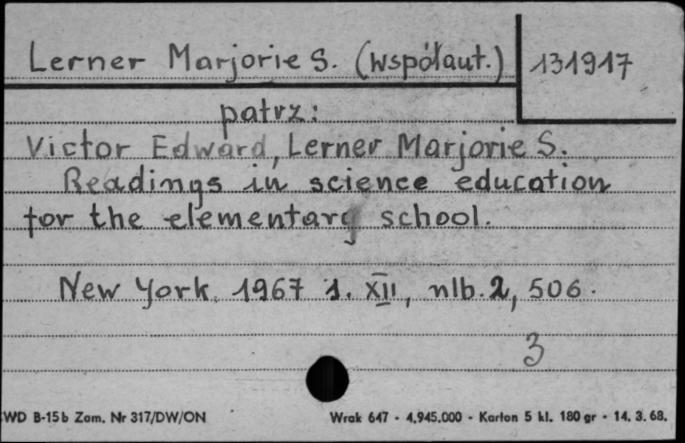 Lerner Marjorie S. (współaut.) 131917
patrz:
Victor Edward, Lerner Marjorie S.
Readings in science education
for the elementary school.
New York 1967 1. XII, nlb. 2, 506.
3
WD B-15b Zam. Nr 317/DW/ON Wrak 647 - 4.945.000 - Karton 5 kl. 180 gr - 14. 3. 68.